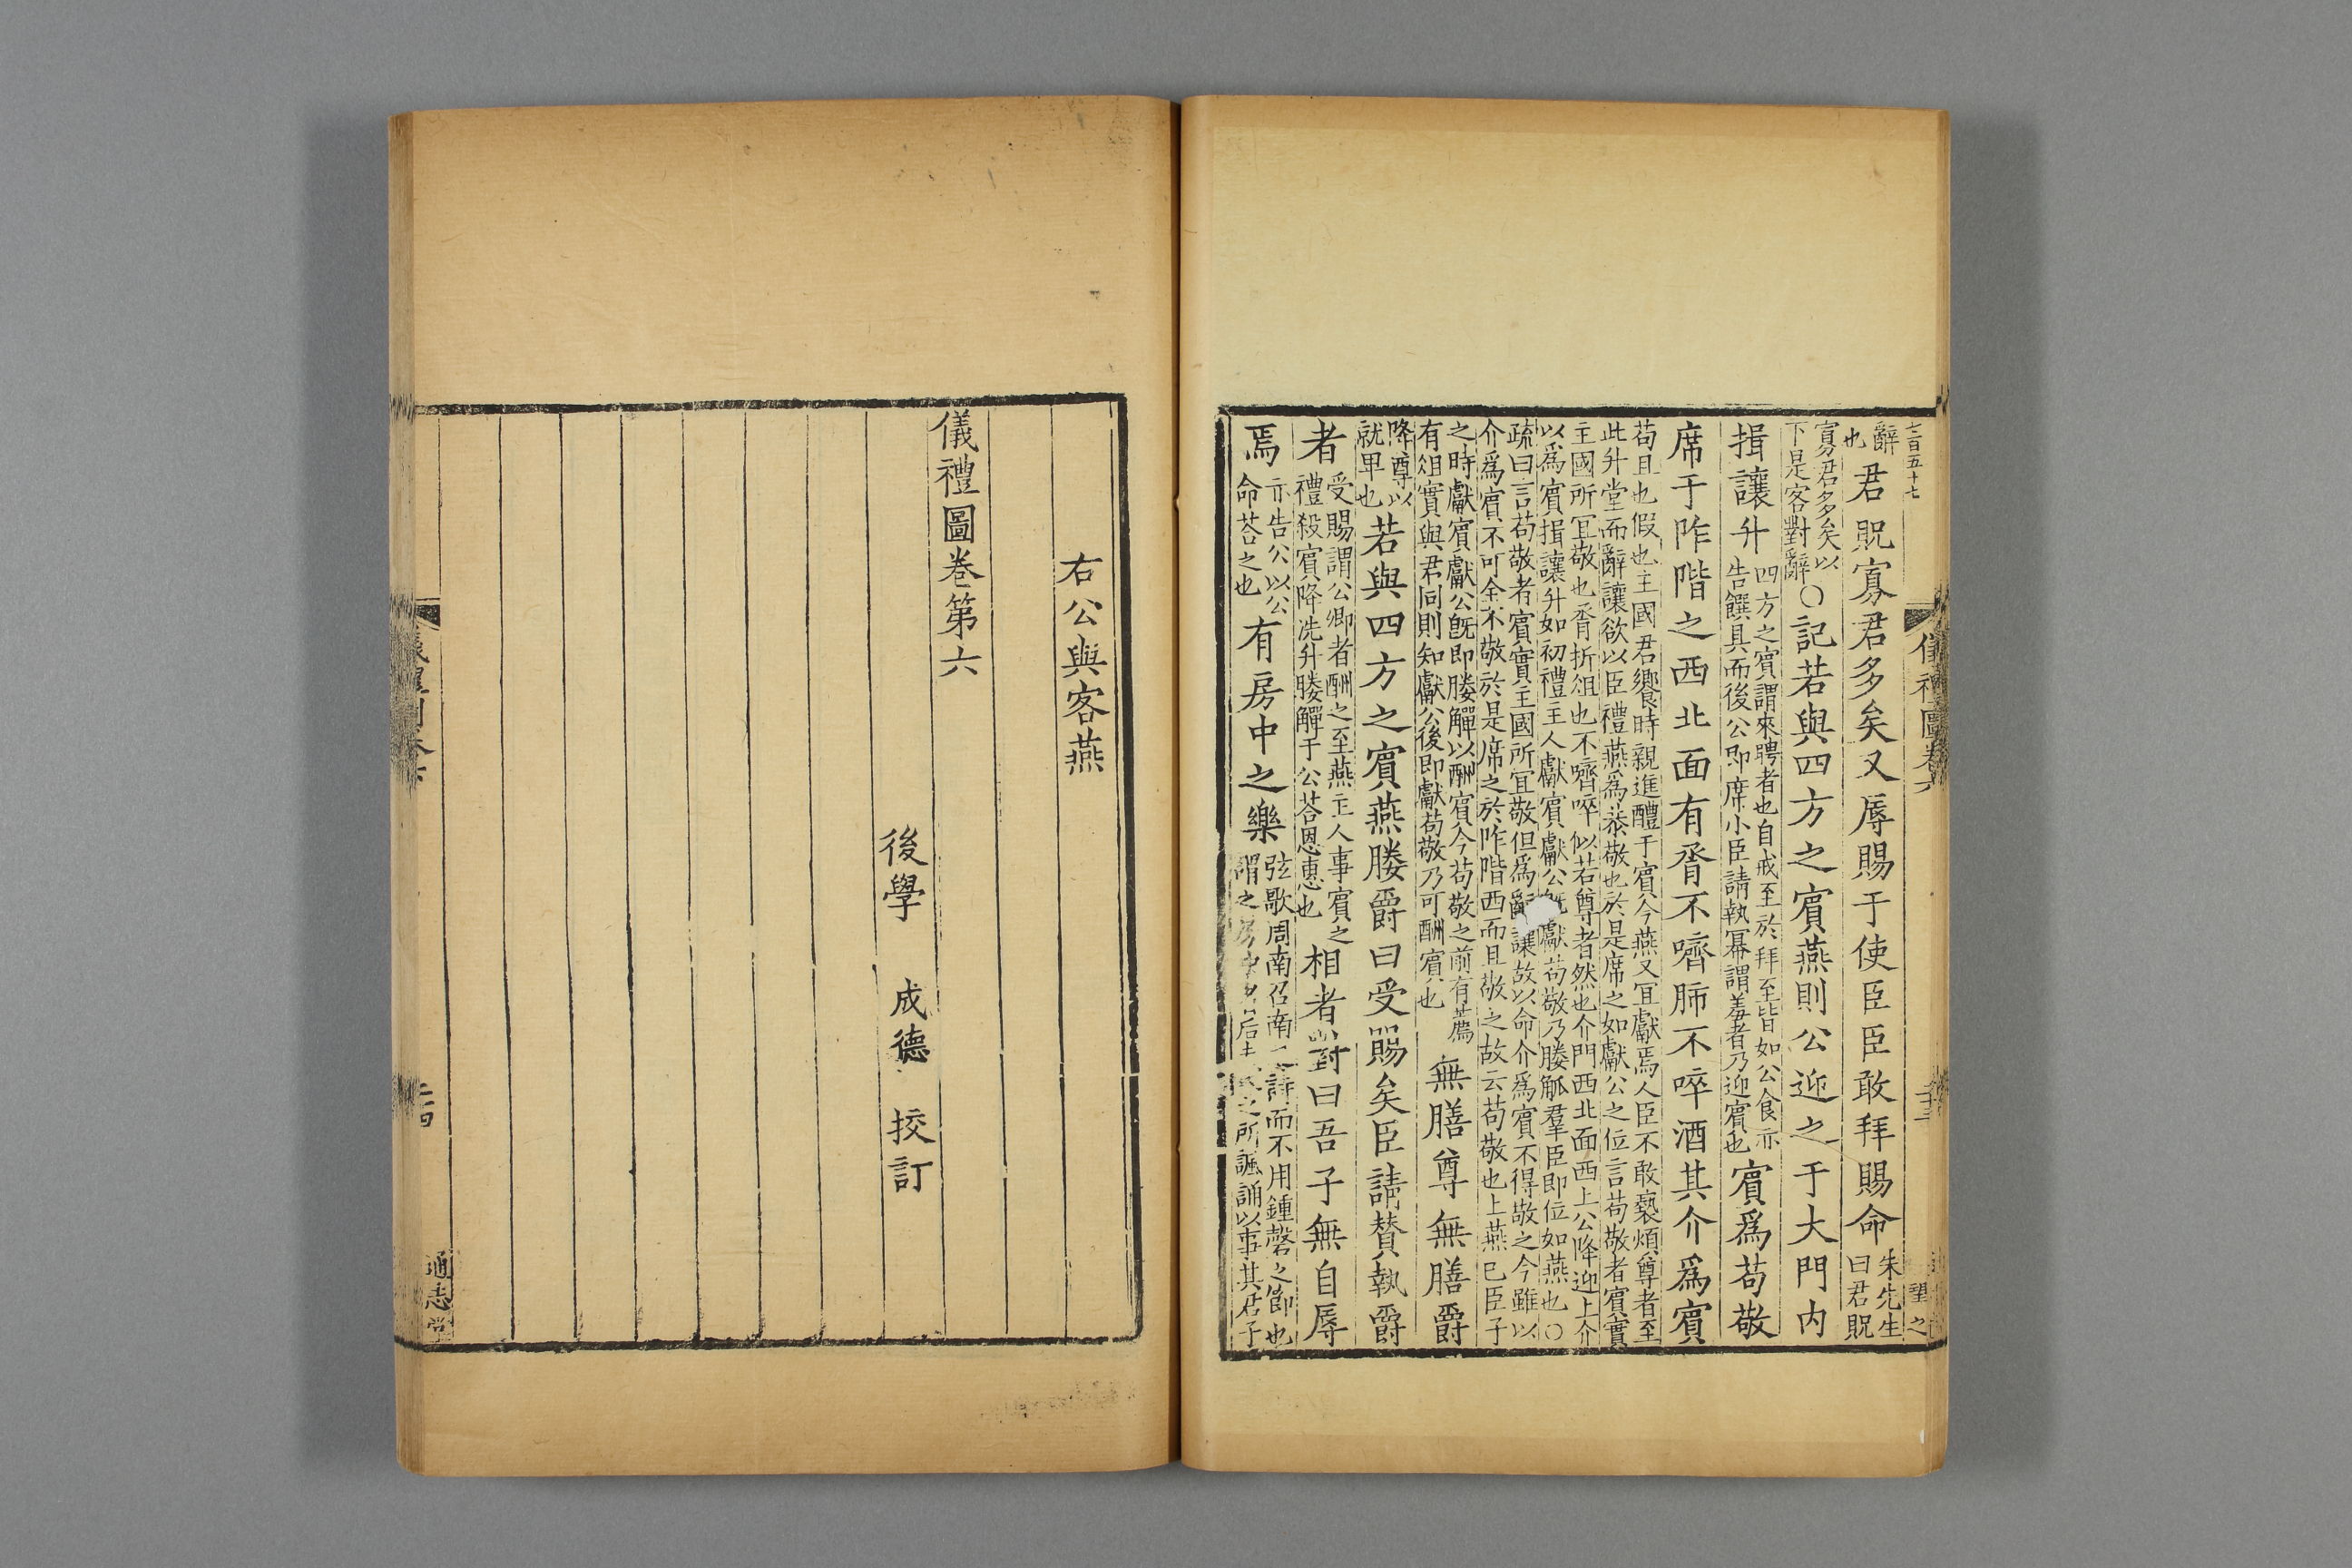 七百五十七
辭也君貺寡君多矣又辱賜于使臣臣敢拜賜命朱先生曰君貺
寡君多矣以下是客對辭○記若與四方之賓燕則公迎之于大門内
揖讓升四方之賓謂來聘者也自戒至於拜至皆如公食亦告饌具而後公即席小臣請執冪謂羞者乃迎賓也賓爲苟敬
席于阼階之西北面有脀不嚌肺不啐酒其介爲賓
苟且也假也主國君饗時親進醴于賓今燕又宜獻焉人臣不敢褻煩尊者至此升堂而辭讓欲以臣禮燕爲恭敬也於是席之如獻公之位言苟敬者賓實
主國所宜敬也脀折俎也不嚌啐似若尊者然也介門西北面西上公降迎上介以爲賓揖讓升如初禮主人獻賓獻公既獻苟敬乃媵觚羣臣即位如燕也○
疏曰言苟敬者賓實主國所宜敬但爲辭讓故以命介爲賓不得敬之今雖以介爲賓不可全不敬於是席之於阼階西而且敬之故云苟敬也上燕己臣子
之時獻賓獻公既即媵觶以酬賓今苟敬之前有薦有俎實與君同則知獻公後即獻苟敬乃可酬賓也無膳尊無膳爵
降尊以就卑也若與四方之賓燕媵爵曰受賜矣臣請贊執爵
者受賜謂公卿者酬之至燕主人事賓之禮殺賓降洗升媵觶于公荅恩惠也相者對曰吾子無自辱
焉亦告公以公命荅之也有房中之樂弦歌周南召南之詩而不用鍾磬之節也謂之房中者后夫人之所諷誦以事其君子
儀禮圖卷六
右公與客燕
儀禮圖卷第六
後學 成德 挍訂
通志堂